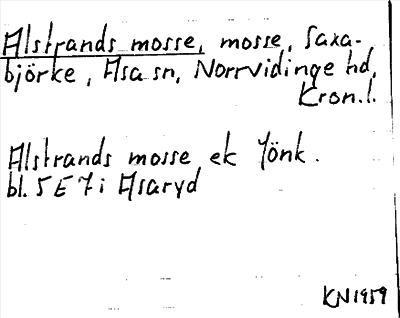 Alstrands mosse, mosse, Saxa-
björke, Asa sn, Norrvidinge hd,
Kron.l.
Alstrands mosse ek Jönk.
bl. 5 E 7 i Asaryd
KN 1959